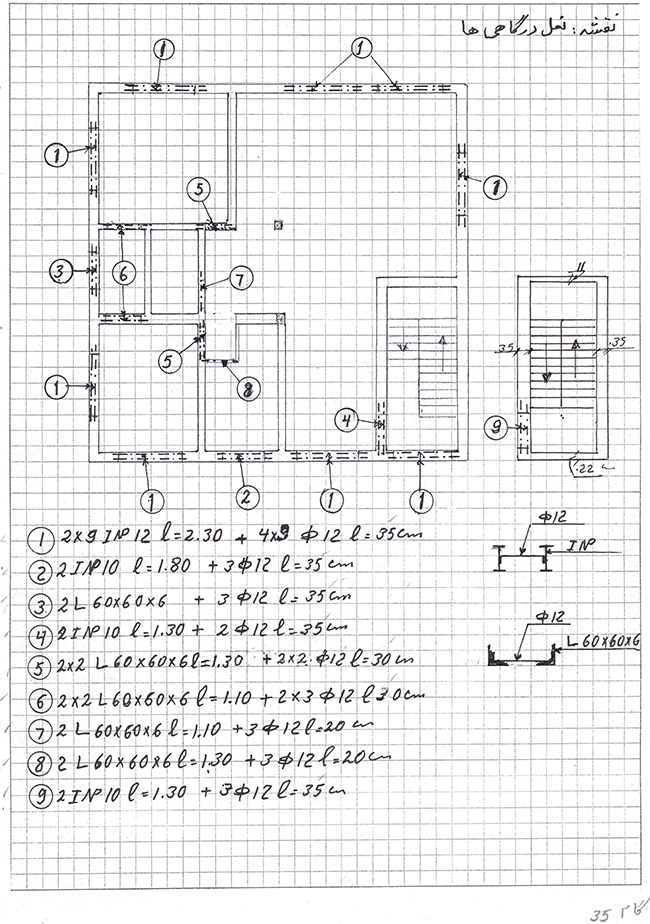 نقشه: نعل درگاهی ها
1
1
1
1
5
3
6
7
5
1
8
4
1
2
1
1
11
35
35
9
22
① 2×9 INP 12 l=2.30 + 4×9 Φ12 l=35cm
② 2INP10 l=1.80 + 3Φ12 l=35cm
③ 2L 60×60×6 + 3Φ12 l=35cm
④ 2INP10 l=1.30+ 2Φ12 l=35cm
⑤ 2×2 L 60×60×6 l=1.30 + 2×2 Φ12 l=30cm
⑥ 2×2 L60×60×6 l=1.10 + 2×3 Φ12 l 30cm
⑦ 2 L60×60×6 l=1.10 + 3Φ12 l=20cm
⑧ 2 L 60×60×6 l=1.30 + 3Φ12 l=20cm
⑨ 2INP10 l=1.30 + 3Φ12 l=35cm
Φ12
INP
Φ12
L 60×60×6
35